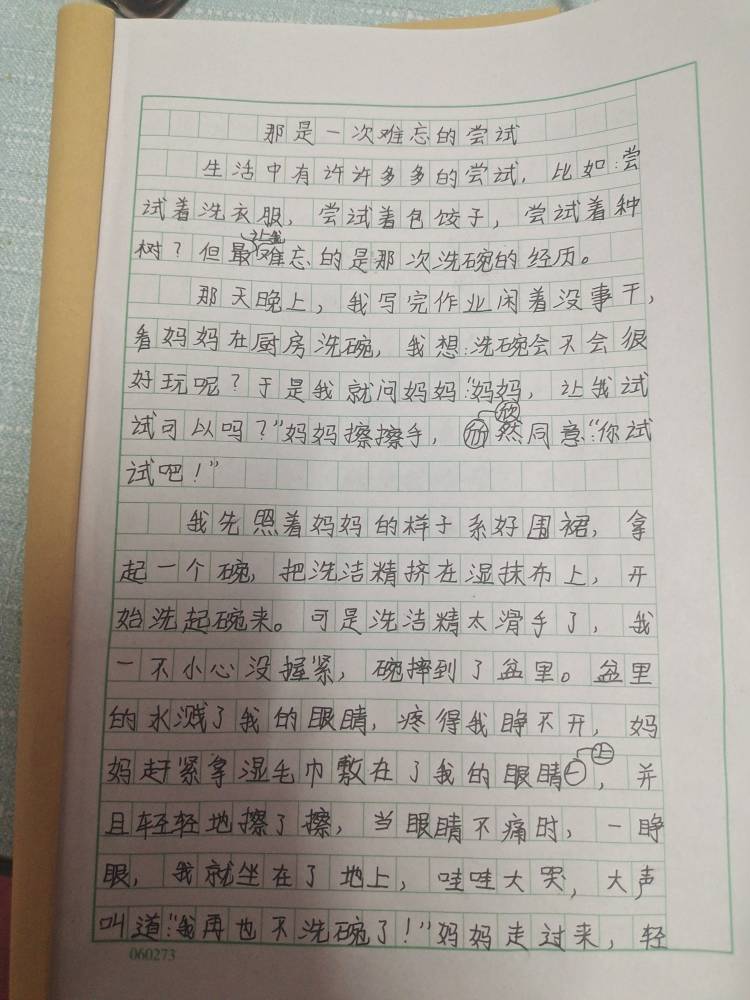 那是一次难忘的尝试
生活中有许许多多的尝试，比如：尝
试着洗衣服，尝试着包饺子，尝试着种
树？但最让我难忘的是那次洗碗的经历。
那天晚上，我写完作业闲着没事干，
看妈妈在厨房洗碗，我想：洗碗会不会很
好玩呢？于是我就问妈妈：“妈妈，让我试
试可以吗？”妈妈擦擦手，欣然同意：“你试
试吧！”
我先照着妈妈的样子系好围裙，拿
起一个碗，把洗洁精挤在湿抹布上，开
始洗起碗来。可是洗洁精太滑手了，我
一不小心没握紧，碗摔到了盆里。盆里
的水溅了我的眼睛，疼得我睁不开，妈
妈赶紧拿湿毛巾敷在了我的眼睛上，并
且轻轻地擦了擦，当眼睛不痛时，一睁
眼，我就坐在了地上，哇哇大哭，大声
叫道：“我再也不洗碗了！”妈妈走过来，轻
060273